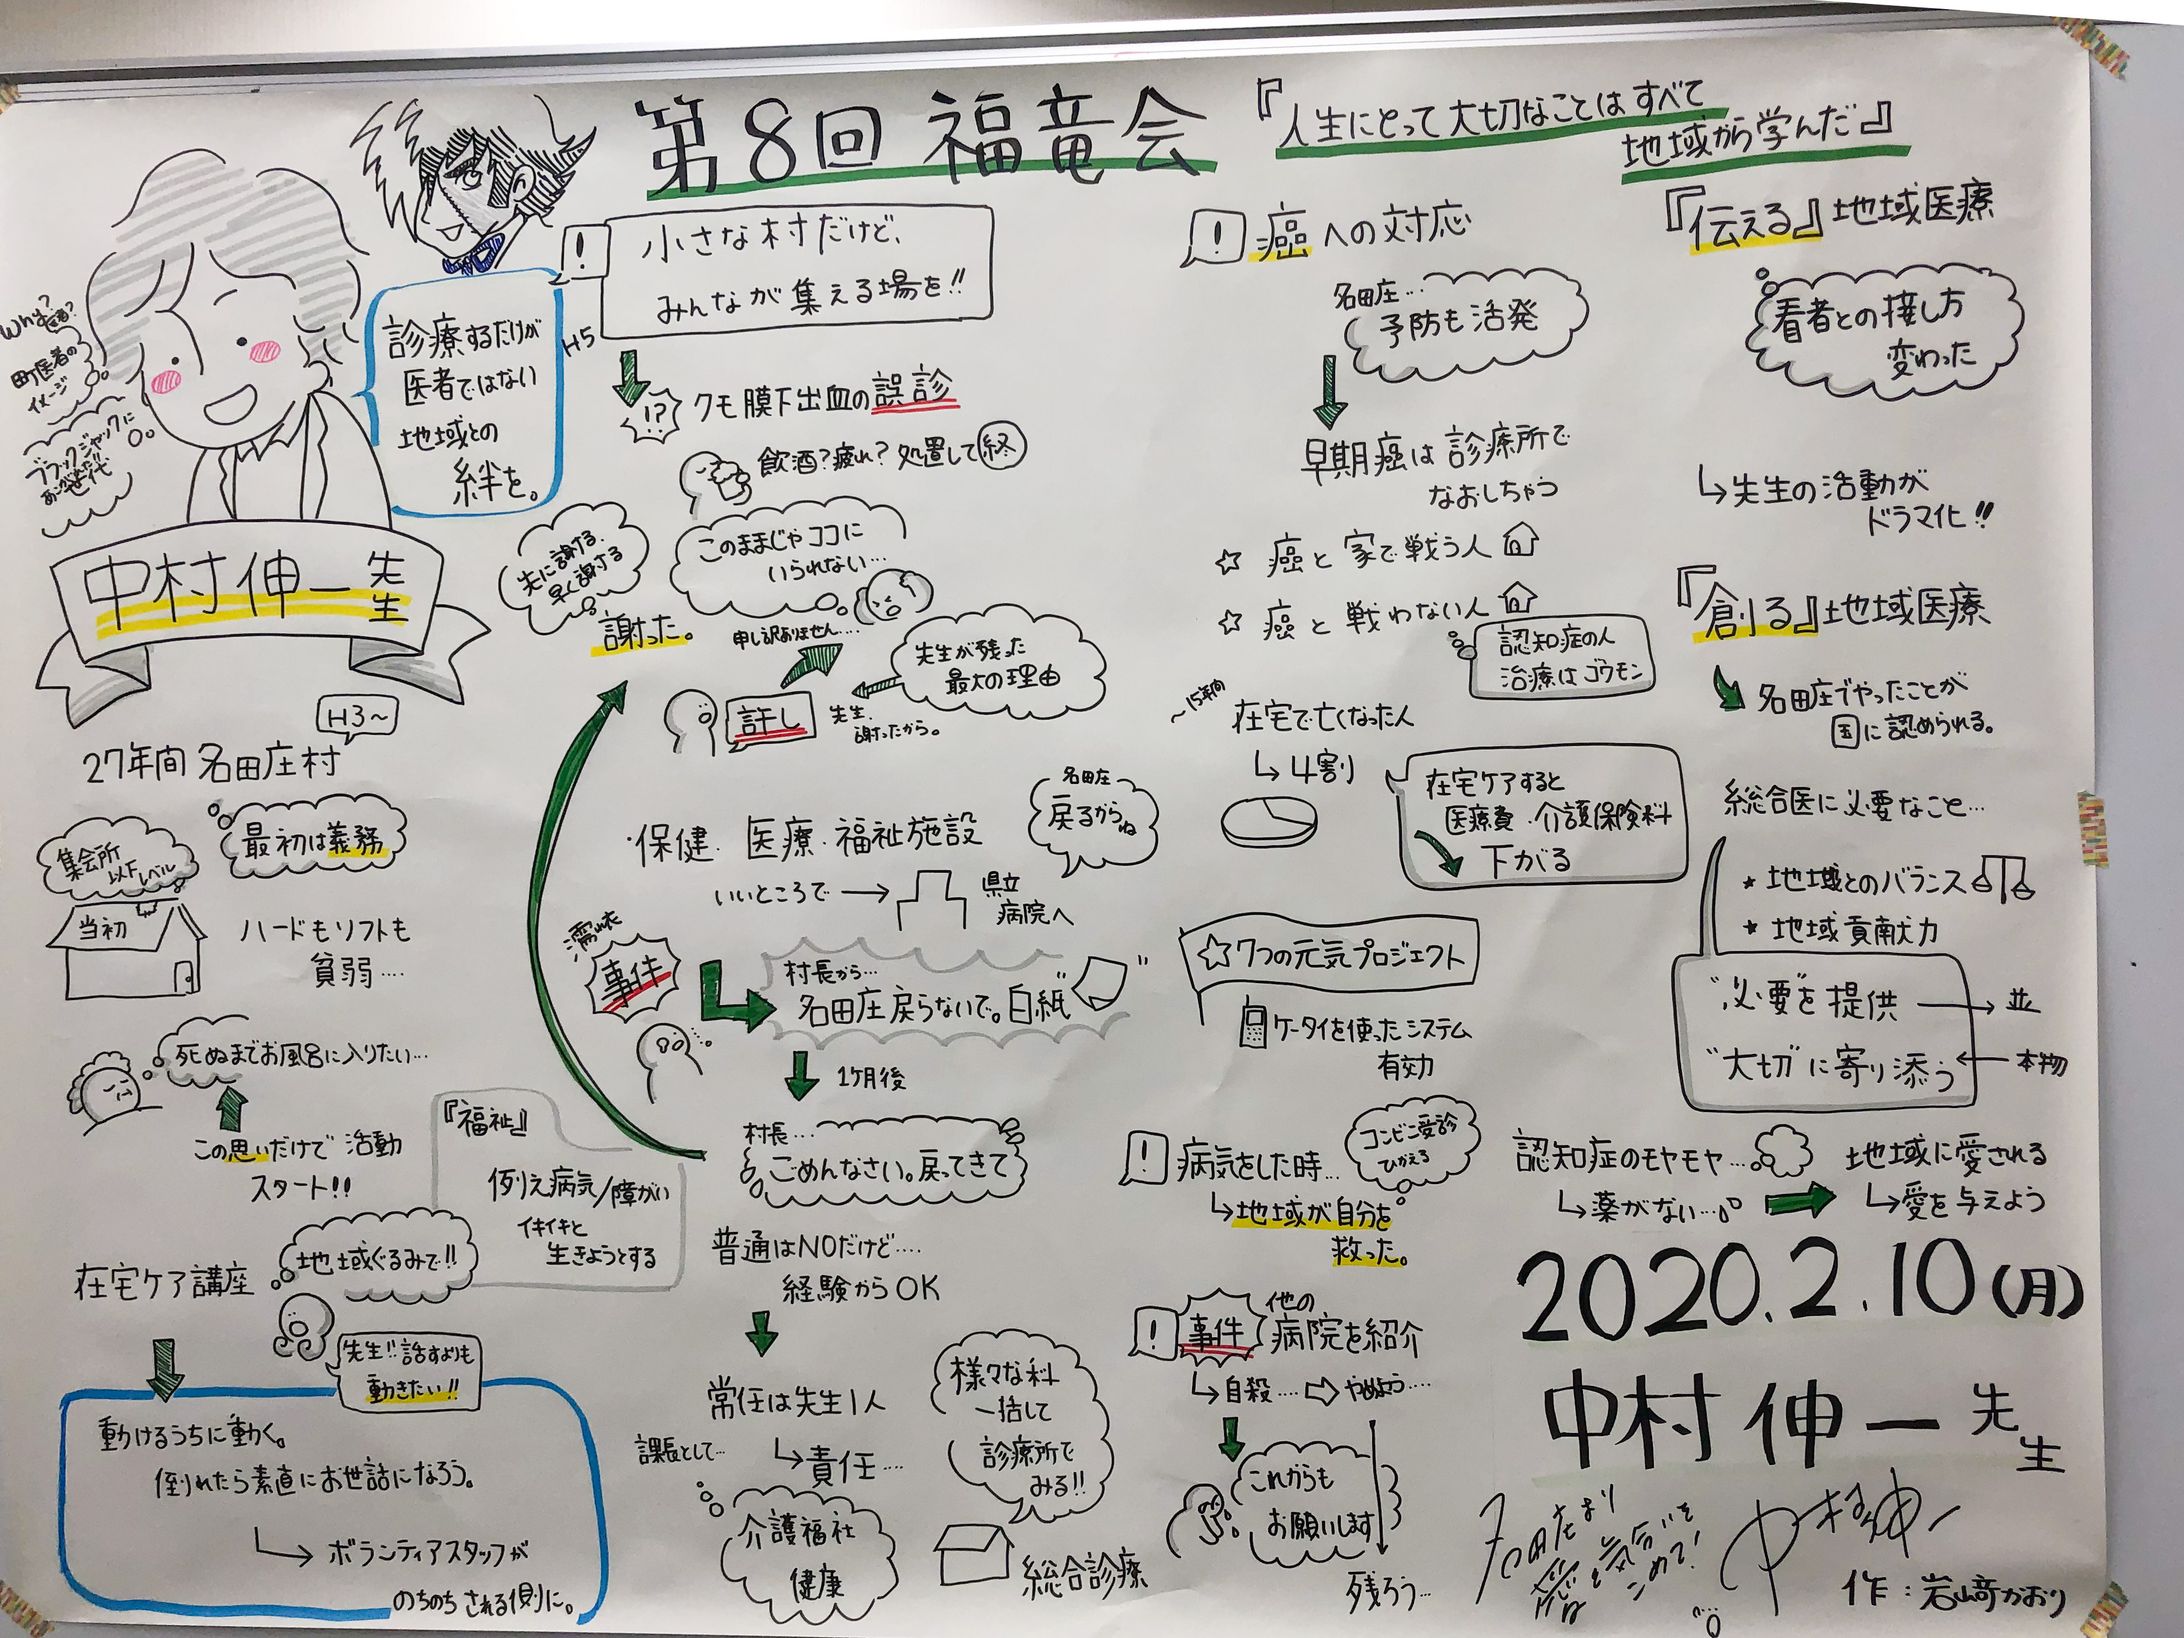 第8回 福竜会
『人生にとって大切なことはすべて
地域から学んだ』
Why?
町医者の
イメージ
ブラックジャックに
あこがれた世代
診療するだけが
医者ではない
地域との
絆を。
中村伸一先生
H3～
27年間 名田庄村
最初は義務
集会所
以下レベル
当初
ハードもソフトも
貧弱....
死ぬまでお風呂に入りたい...
この思いだけで 活動
スタート!!
『福祉』
例え病気/障がい
イキイキと
生きようとする
在宅ケア講座
地域ぐるみで!!
先生!!話すよりも
動きたい!!
動けるうちに動く。
倒れたら素直にお世話になろう。
ボランティアスタッフが
のちのち される側に。
!
小さな村だけど、
みんなが集える場を!!
H5
!?
クモ膜下出血の誤診
飲酒?疲れ? 処置して終
このままじゃココに
いられない...
先に謝る、
早く謝る
謝った。
申し訳ありません....
先生が残った
最大の理由
許し
先生、
謝ったから。
・保健・医療・福祉施設
名田庄
戻るからね
いいところで → 県立
病院へ
濡れ衣
事件
村長から...
名田庄戻らないで。白紙
1ヶ月後
村長...
ごめんなさい。戻ってきて
普通はNOだけど....
経験からOK
常任は先生1人
責任...
課長として...
介護福社
健康
様々な科
一括して
診療所で
みる!!
総合診療
! 癌への対応
名田庄...
予防も活発
早期癌は診療所で
なおしちゃう
☆ 癌と家で戦う人
☆ 癌と戦わない人
認知症の人
治療はゴウモン
～15年間
在宅で亡くなった人
4割
在宅ケアすると
医療費・介護保険料
下がる
☆7つの元気プロジェクト
ケータイを使ったシステム
有効
! 病気をした時...
コンビニ受診
ひかえる
地域が自分を
救った。
! 事件 他の
病院を紹介
自殺.... ⇨ やめよう....
これからも
お願いします
残ろう...
『伝える』地域医療
看者との接し方
変わった
先生の活動が
ドラマ化!!
『創る』地域医療
名田庄でやったことが
国に認められる。
総合医に必要なこと...
★ 地域とのバランス
★ 地域貢献力
"必要"を提供 → 並
"大切"に寄り添う ← 本物
認知症のモヤモヤ...
薬がない...
地域に愛される
愛を与えよう
2020.2.10(月)
中村伸一先生
名田庄より
愛と気合いを
こめて!
中村伸一
作:岩﨑かおり